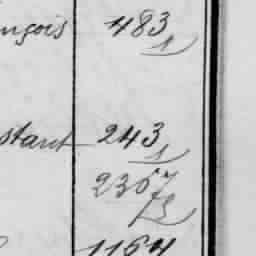 nçois 483
1
stant 243
1
2367
1164